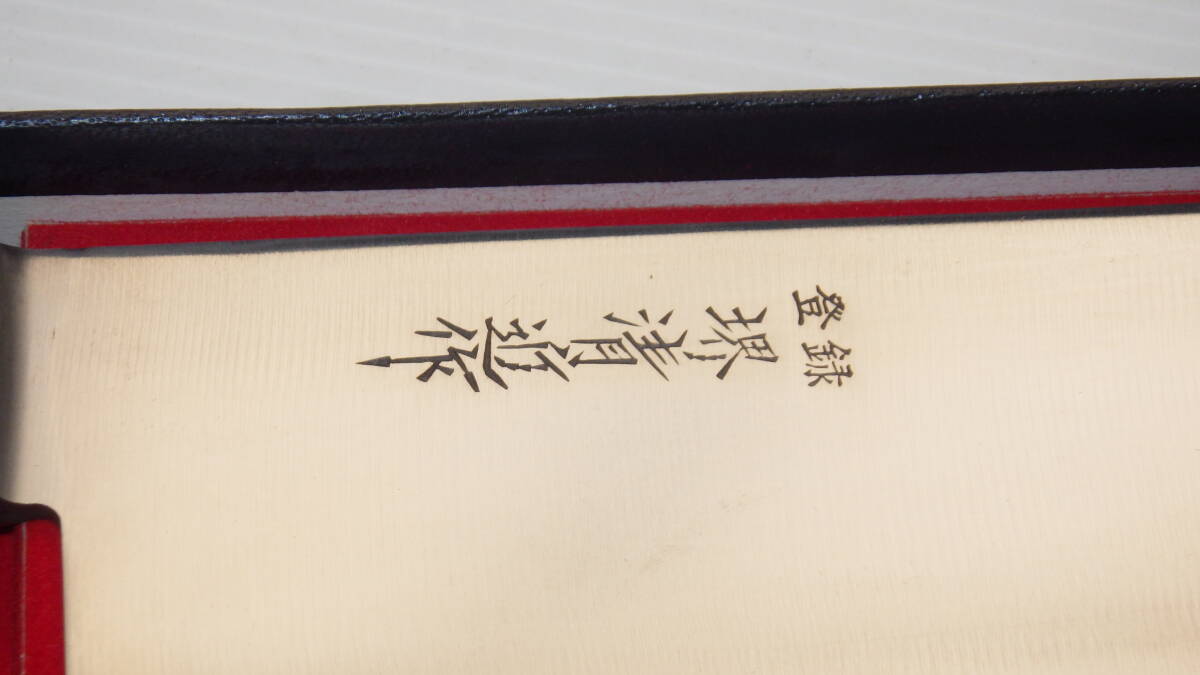 登録
堺清近作